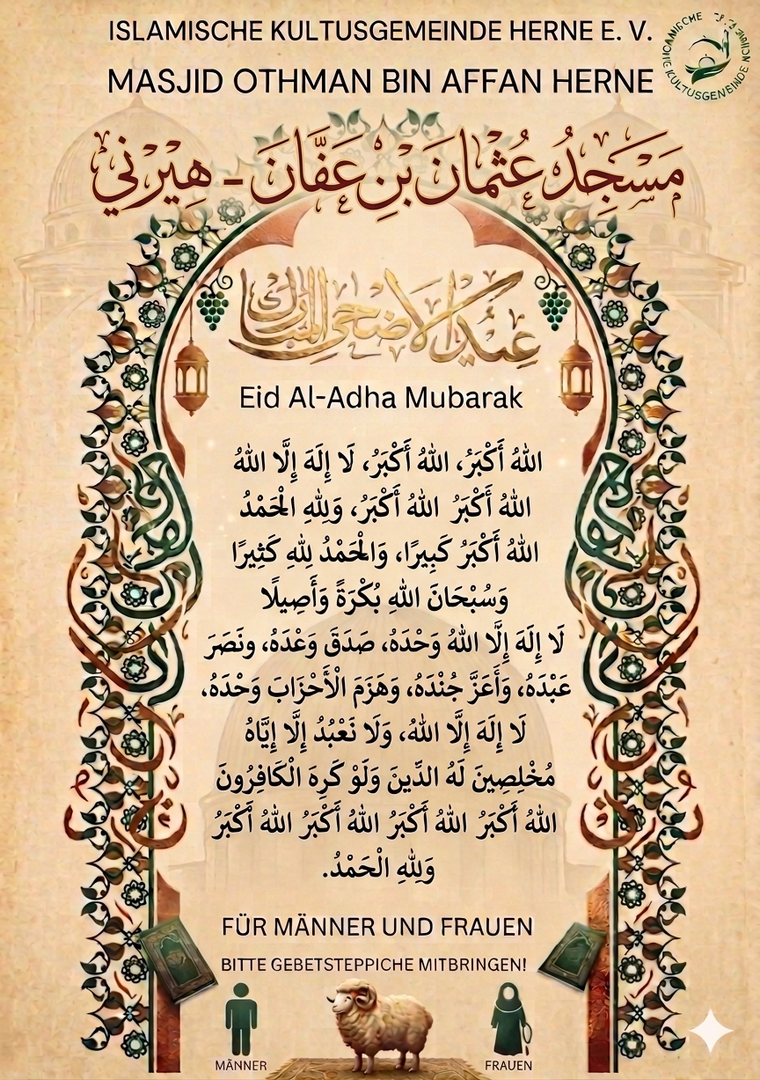 ISLAMISCHE KULTUSGEMEINDE HERNE E. V.
MASJID OTHMAN BIN AFFAN HERNE
مَسَجِدُ عُثْمَانَ بْنِ عَفَّانَ - هِيْرْنِي
عيد الاضحى المبارك
Eid Al-Adha Mubarak
اللهُ أَكْبَرُ، اللهُ أَكْبَرُ، لَا إِلَهَ إِلَّا اللهُ
اللهُ أَكْبَرُ اللهُ أَكْبَرُ، وَلِلهِ الْحَمْدُ
اللهُ أَكْبَرُ كَبِيرًا، وَالْحَمْدُ لِلهِ كَثِيرًا
وَسُبْحَانَ اللهِ بُكْرَةً وَأَصِيلًا
لَا إِلَهَ إِلَّا اللهُ وَحْدَهُ، صَدَقَ وَعْدَهُ، ونَصَرَ
عَبْدَهُ، وَأَعَزَّ جُنْدَهُ، وَهَزَمَ الْأَحْزَابَ وَحْدَهُ،
لَا إِلَهَ إِلَّا اللهُ، وَلَا نَعْبُدُ إِلَّا إِيَّاهُ
مُخْلِصِينَ لَهُ الدِّينَ وَلَوْ كَرِهَ الْكَافِرُونَ
اللهُ أَكْبَرُ اللهُ أَكْبَرُ اللهُ أَكْبَرُ اللهُ أَكْبَرُ
وَلِلهِ الْحَمْدُ.
FÜR MÄNNER UND FRAUEN
BITTE GEBETSTEPPICHE MITBRINGEN!
MÄNNER
FRAUEN